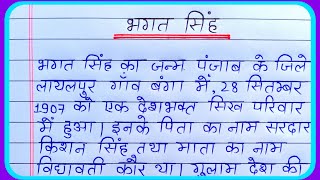 भगत सिंह
भगत सिंह का जन्म पंजाब के जिले
लायलपुर गाँव बंगा में, 28 सितम्बर
1907 को एक देशभक्त सिख परिवार
में हुआ। इनके पिता का नाम सरदार
किशन सिंह तथा माता का नाम
विद्यावती कौर था। गुलाम देश की